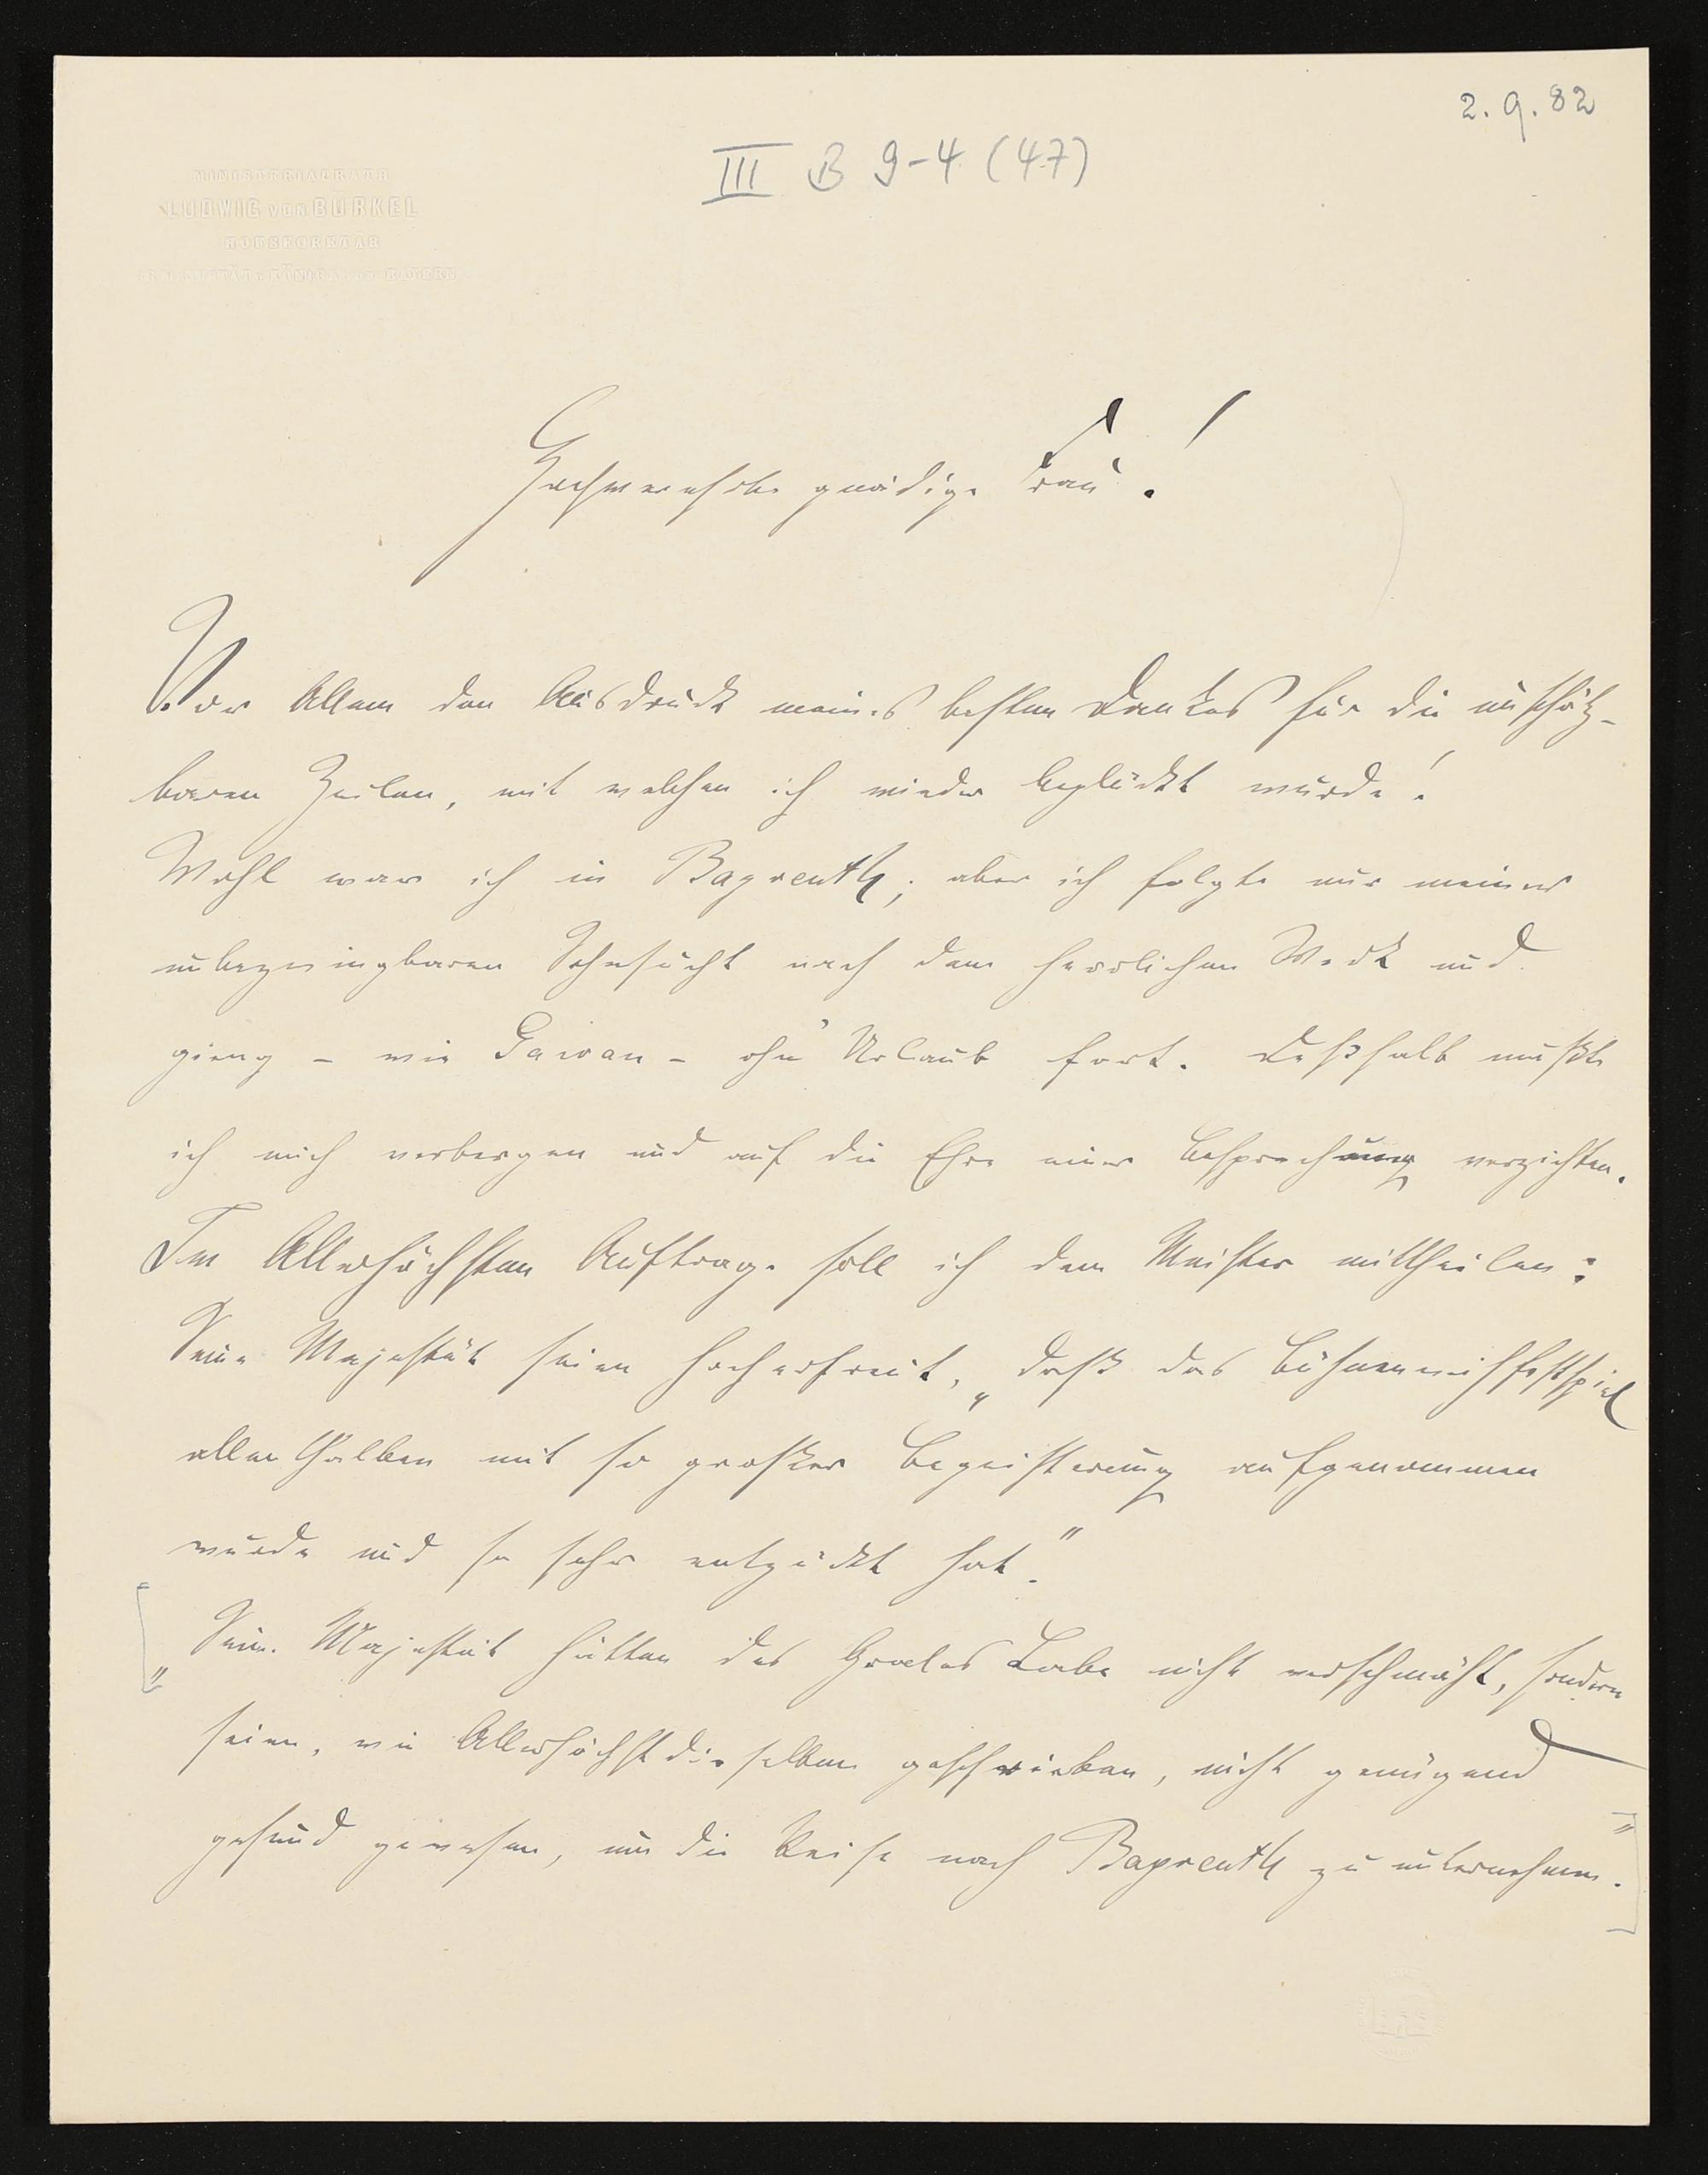 2.9.82
III B 9-4 (47)
MINISTERIALRATH
LUDWIG VON BÜRKEL
HOFSEKRETÄR
KÖNIGS BAYERN
Hochverehrte gnädige Frau!
Vor Allem den Ausdruck meines besten Dankes für die unschätz-
baren Zeilen, mit welchen ich wieder beglückt wurde!
Wohl war ich in Bayreuth; aber ich folgte nur meiner
unbezwingbaren Sehnsucht nach dem herrlichen Werk und
gieng – wie Gawan – ohn' Urlaub fort. Deßhalb mußte
ich mich verbergen und auf die Ehre einer Besprechung verzichten.
Im Allerhöchsten Auftrage soll ich dem Meister mittheilen:
Seine Majestät seien hocherfreut, „daß das Bühnenweihfestspiel
allenthalben mit so großer Begeisterung aufgenommen
wurde und so sehr entzückt hat."
„Seine Majestät hätten des Grales Labe nicht verschmäht, sondern
seien, wie Allerhöchstdieselben geschrieben, nicht genügend
gesund gewesen, um die Reise nach Bayreuth zu unternehmen."